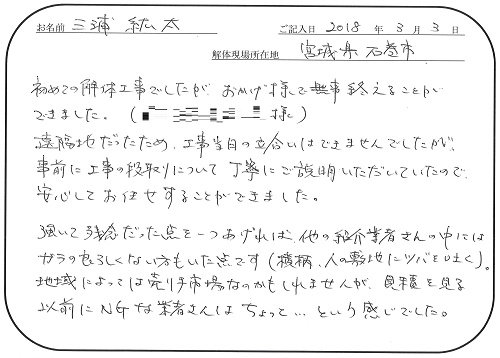 お名前 三浦 紘太 ご記入日 2018 年 3 月 3 日
解体現場所在地 宮城県石巻市
初めての解体工事でしたが、おかげ様で無事終えることが
できました。( 様)
遠隔地だったため、工事当日の立合いはできませんでしたが、
事前に工事の段取りについて丁寧にご説明いただいていたので、
安心してお任せすることができました。
強いて残念だった点を一つあげれば、他の紹介業者さんの中には
ガラの良ろしくない方もいた点です(横柄、人の敷地にツバを吐く)。
地域によっては売り手市場なのかもしれませんが、見積を見る
以前にNGな業者さんはちょって…という感じでした。